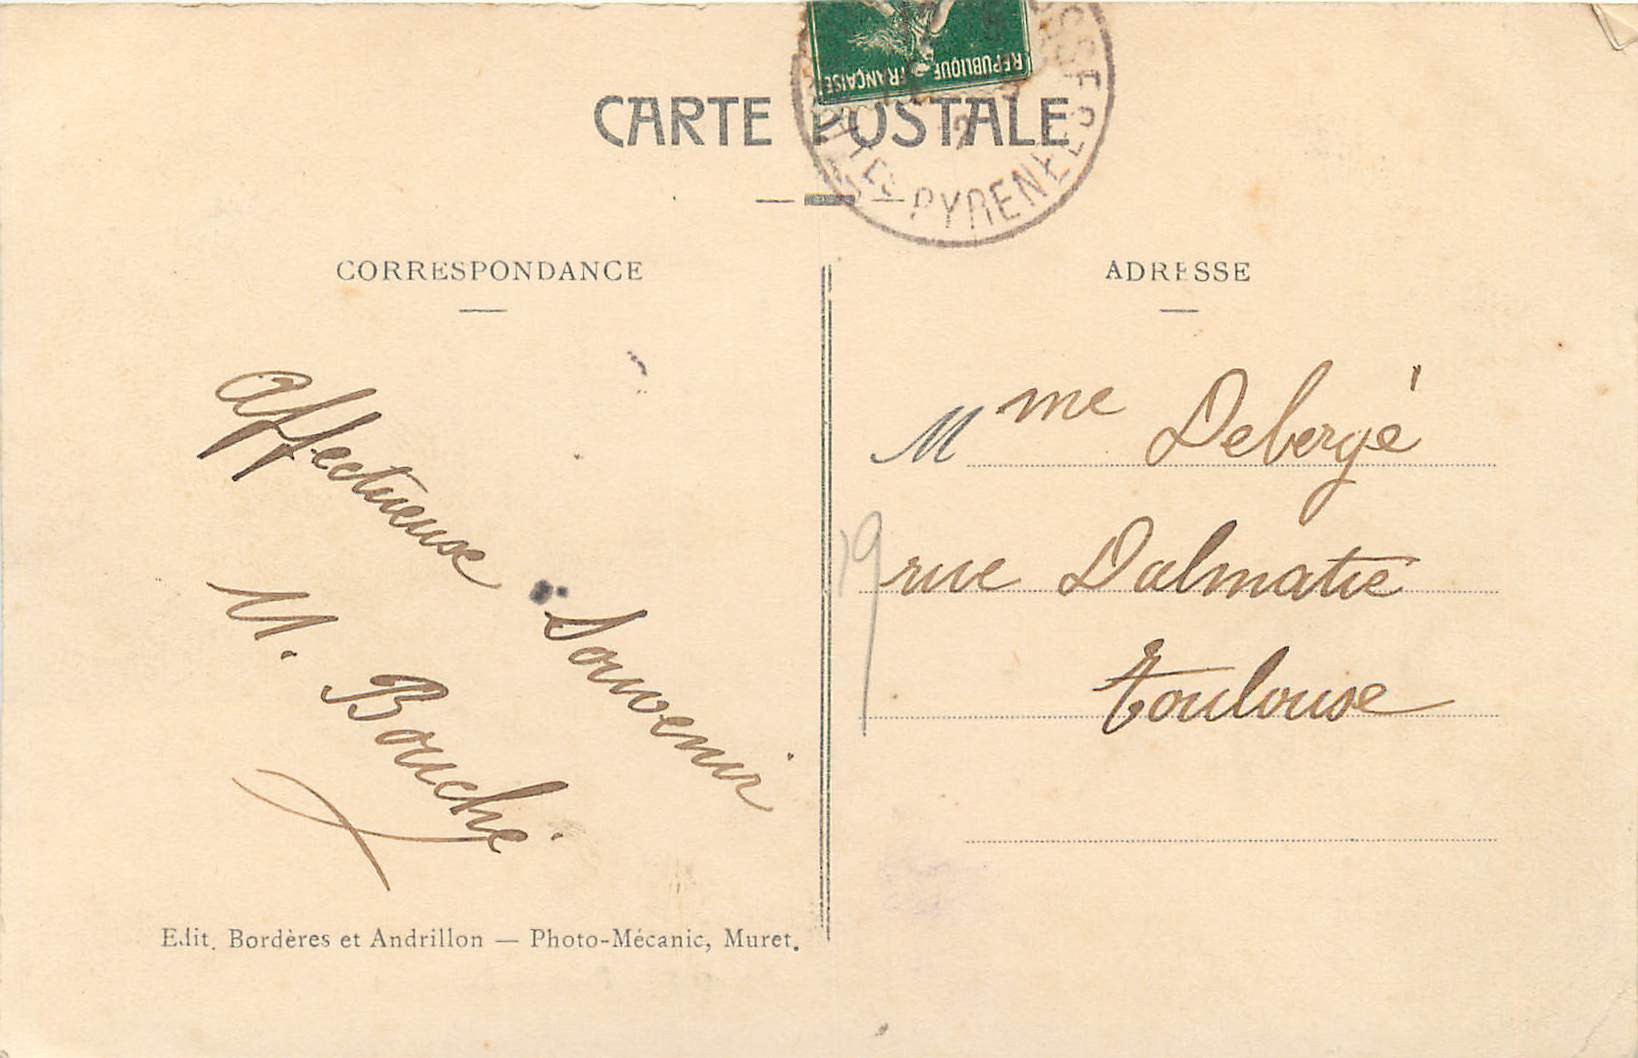 REPUBLIQUE FRANÇAISE
CARTE POSTALE
PYRENEES
CORRESPONDANCE
Affectueuse Souvenir
M. Bouché
Edit. Bordères et Andrillon — Photo-Mécanic, Muret.
ADRESSE
Mme Debergé
19 rue Dalmatie
Toulouse